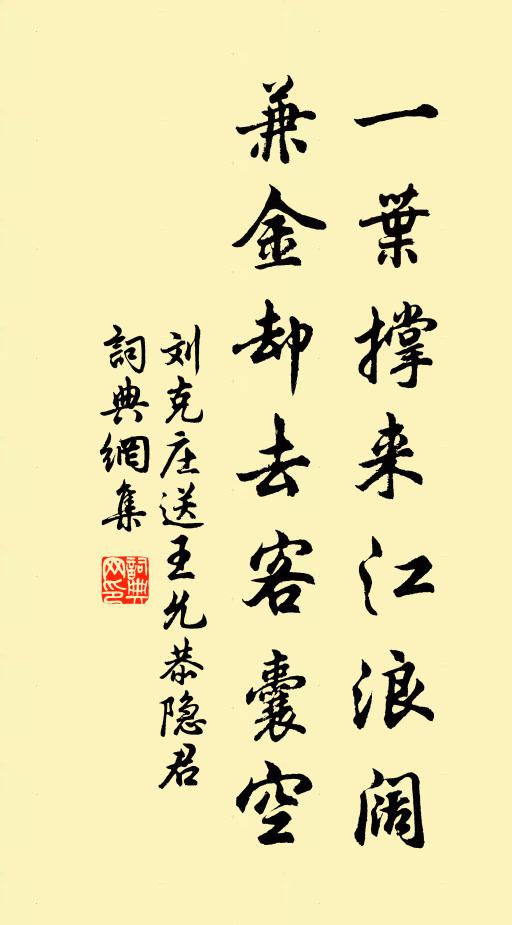 一葉撐来江浪阔
兼金却去客囊空
刘克庄送王允恭隐君
詞典網集
詞典网印